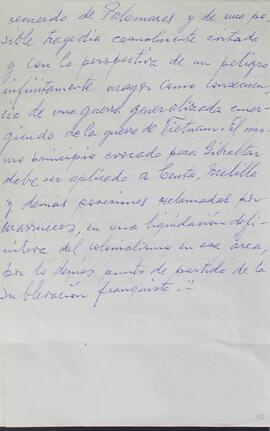 recuerdo de Palomares y de una po-
sible tragedia casualmente evitada
y con la perspectiva de un peligro
infinitamente mayor como consecuen-
cia de una guerra generalizada emer-
giendo de la guerra de Vietnam. El mis-
mo principio evocado para Gibraltar
debe ser aplicado a Ceuta, Melilla
y demás posesiones reclamadas por
Marruecos, en una liquidación defi-
nitiva del colonialismo en esa área,
por lo demás punto de partida de la
sublevación franquista.